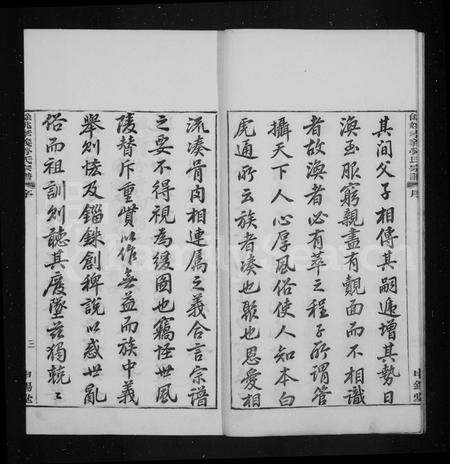 其間父子相傳其嗣遞增其勢日
渙玉服窮親盡有覿面而不相識
者故渙者必有萃之程子所謂管
攝天下人心厚風俗使人知本白
虎通所云族者湊也聚也恩愛相
流湊骨肉相連屬之義合言宗譜
之要不得視為緩圖也竊怪世風
陵替斥重貲以作無益而族中義
舉則怯及錙銖創稗說以惑世亂
俗而祖訓則聽其廢墜茲獨兢兢
序
三